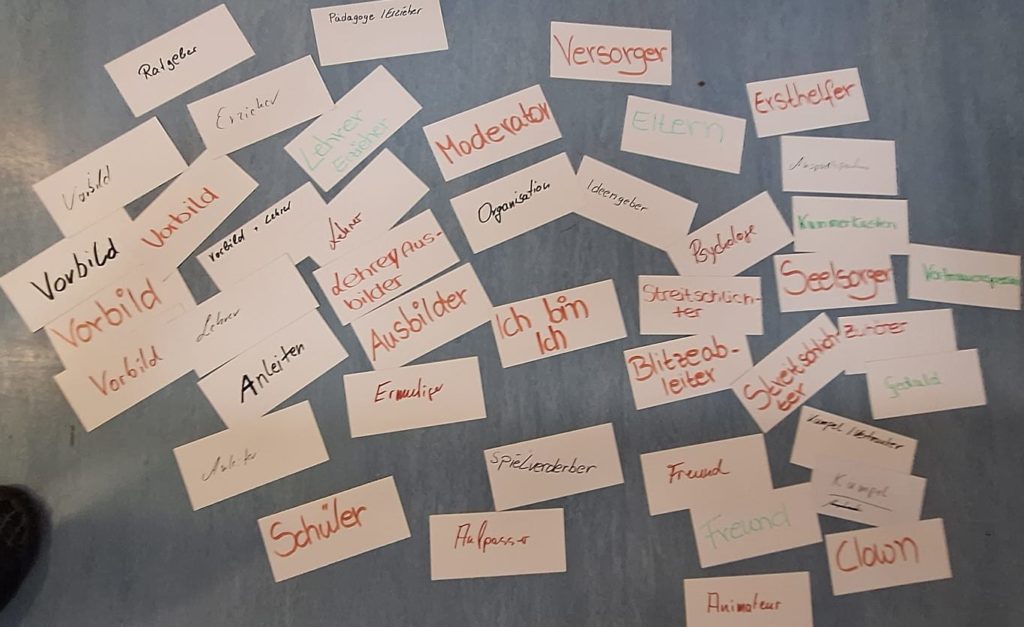 Ratgeber
Pädagoge / Erzieher
Versorger
Ersthelfer
Erzieher
Lehrer
Erzieher
Moderator
Eltern
Vorbild
Vorbild
Vorbild + Lehrer
Lehrer
Organisation
Ideengeber
Psychologe
Kummerkasten
Vorbild
Lehrer / Aus-
bilder
Streitschlich-
ter
Seelsorger
Vorbild
Lehrer
Ausbilder
Ich bin
Ich
Blitzeab-
leiter
Streitschlich-
ter
Zuhörer
Vorbild
Anleiten
Ermutiger
Geduld
Anleiter
Spielverderber
Freund
Kumpel
Schüler
Aufpasser
Freund
Clown
Animateur